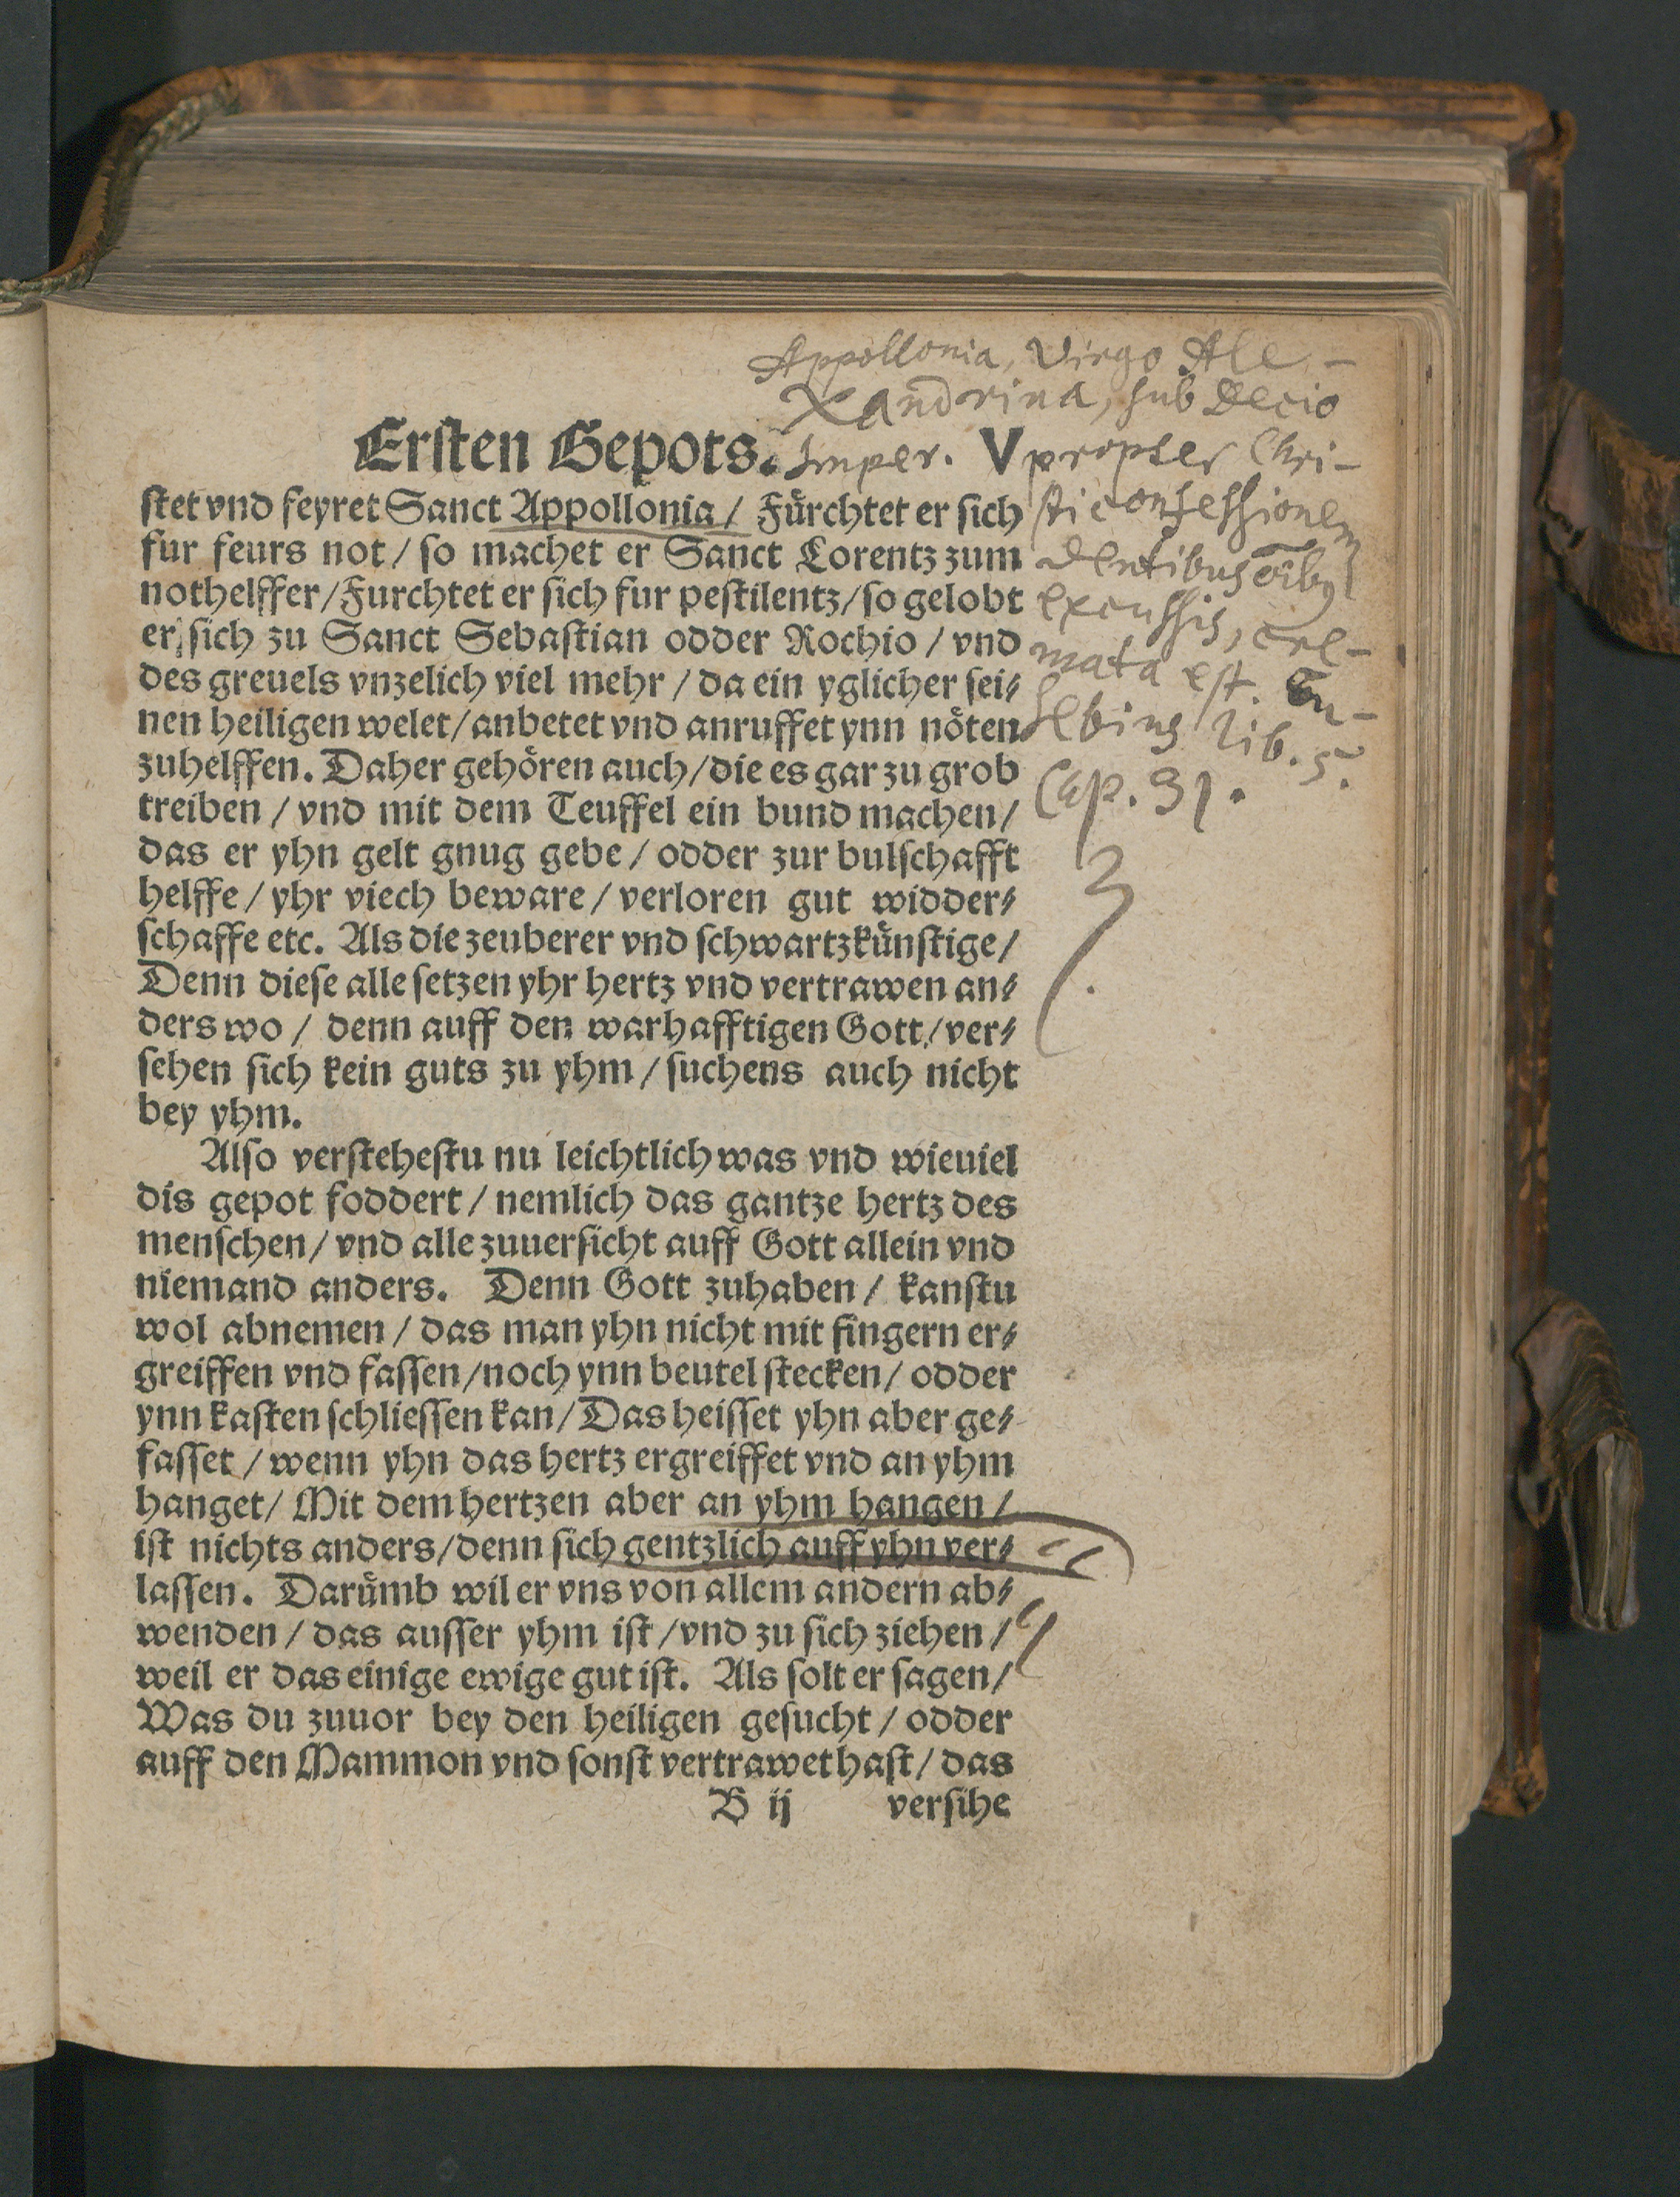 Appollonia, Virgo Ale-
xandrina, sub Decio
Imper. propter Chri-
sti confessionem
dentibus oĩbus
excussis, cre-
mata est. Eu-
sebius lib. 5.
Cap. 31.
Ersten Gepots. V
stet vnd feyret Sanct Appollonia / Fürchtet er sich
fur feurs not / so machet er Sanct Lorentz zum
nothelffer / Furchtet er sich fur pestilentz / so gelobt
er sich zu Sanct Sebastian odder Rochio / vnd
des greuels vnzelich viel mehr / da ein yglicher sei⸗
nen heiligen welet / anbetet vnd anruffet ynn nöten
zuhelffen. Daher gehören auch / die es gar zu grob
treiben / vnd mit dem Teuffel ein bund machen /
das er yhn gelt gnug gebe / odder zur bulschafft
helffe / yhr viech beware / verloren gut widder⸗
schaffe etc. Als die zeuberer vnd schwartzkünstige /
Denn diese alle setzen yhr hertz vnd vertrawen an⸗
ders wo / denn auff den warhafftigen Gott / ver⸗
sehen sich kein guts zu yhm / suchens auch nicht
bey yhm.
Also verstehestu nu leichtlich was vnd wieuiel
dis gepot foddert / nemlich das gantze hertz des
menschen / vnd alle zuuersicht auff Gott allein vnd
niemand anders. Denn Gott zuhaben / kanstu
wol abnemen / das man yhn nicht mit fingern er⸗
greiffen vnd fassen / noch ynn beutel stecken / odder
ynn kasten schliessen kan / Das heisset yhn aber ge⸗
fasset / wenn yhn das hertz ergreiffet vnd an yhm
hanget / Mit dem hertzen aber an yhm hangen /
ist nichts anders / denn sich gentzlich auff yhn ver⸗
lassen. Darümb wil er vns von allem andern ab⸗
wenden / das ausser yhm ist / vnd zu sich ziehen /
weil er das einige ewige gut ist. Als solt er sagen /
Was du zuuor bey den heiligen gesucht / odder
auff den Mammon vnd sonst vertrawet hast / das
B ij versihe